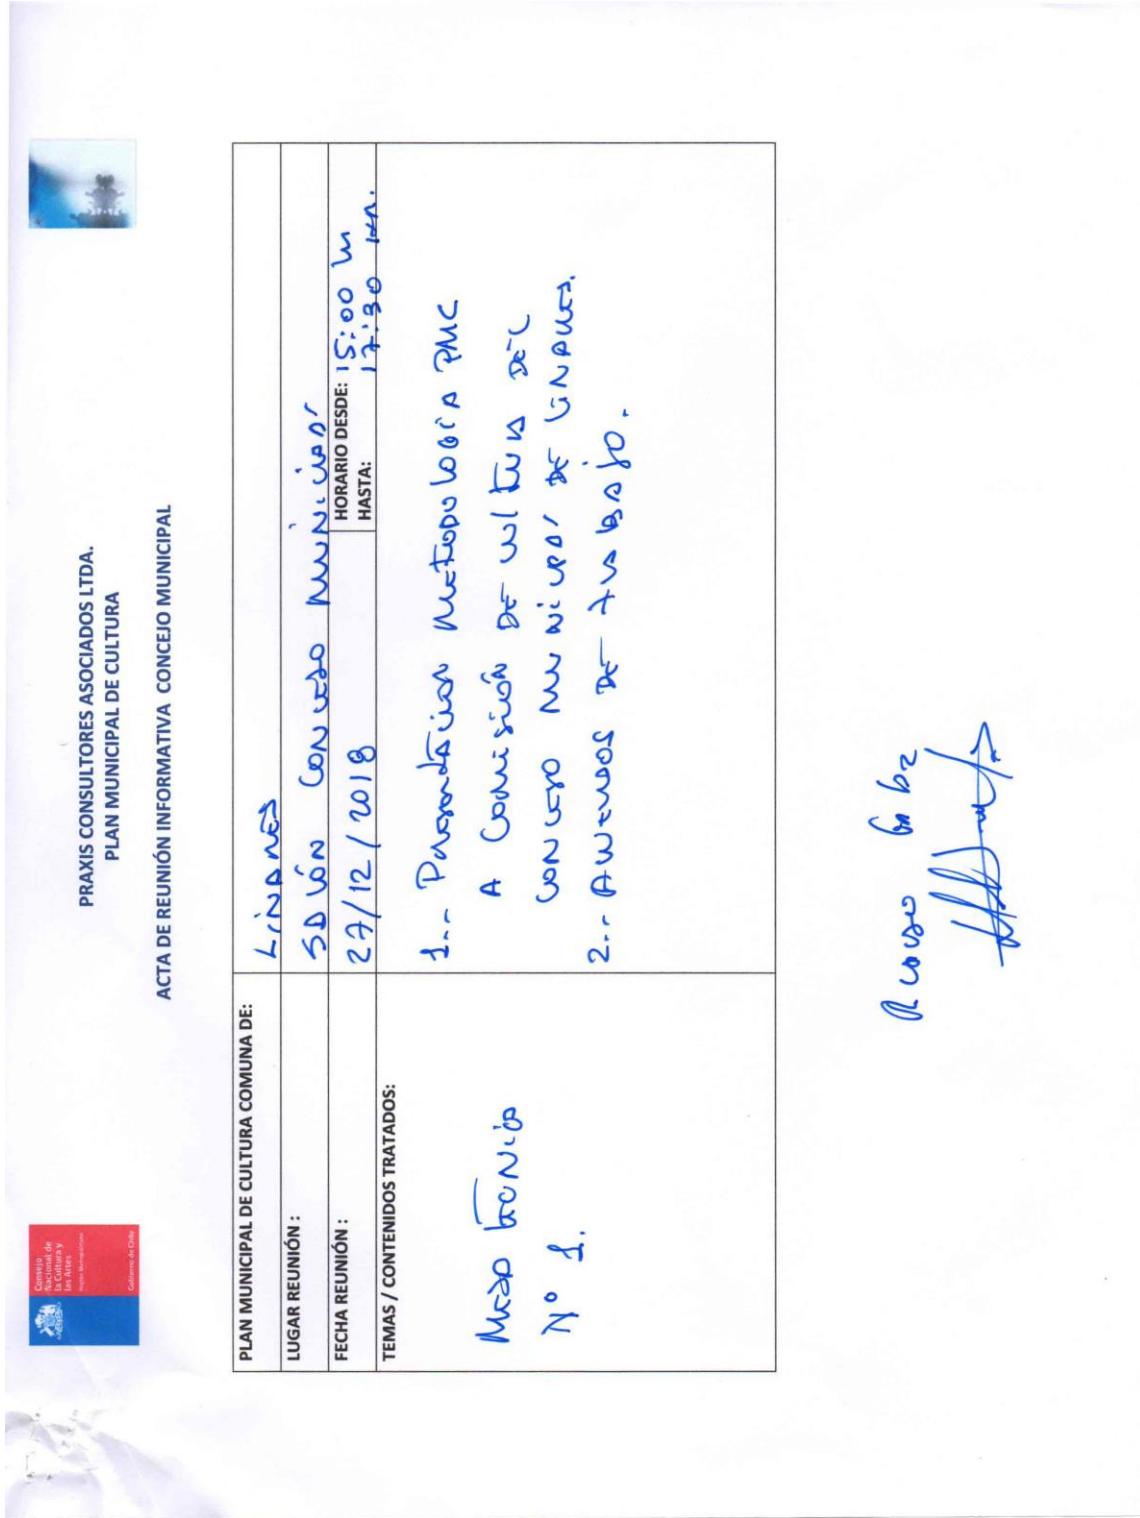 Consejo
Nacional de
la Cultura y
las Artes
Región Metropolitana
Gobierno de Chile
PRAXIS CONSULTORES ASOCIADOS LTDA.
PLAN MUNICIPAL DE CULTURA
ACTA DE REUNIÓN INFORMATIVA CONCEJO MUNICIPAL
PLAN MUNICIPAL DE CULTURA COMUNA DE: LiNARES
LUGAR REUNIÓN : SALÓN CONCEJO MUNICIPAL
FECHA REUNIÓN : 27/12/2018 HORARIO DESDE: 15:00
HASTA: 17:30
TEMAS / CONTENIDOS TRATADOS:
MESA TÉCNICA
Nº 1.
1.- Presentación METODOLOGÍA PMC
A Comisión DE CULTURA DEL
CONCEJO MUNICIPAL DE LINARES.
2.- ACUERDOS DE TRABAJO.